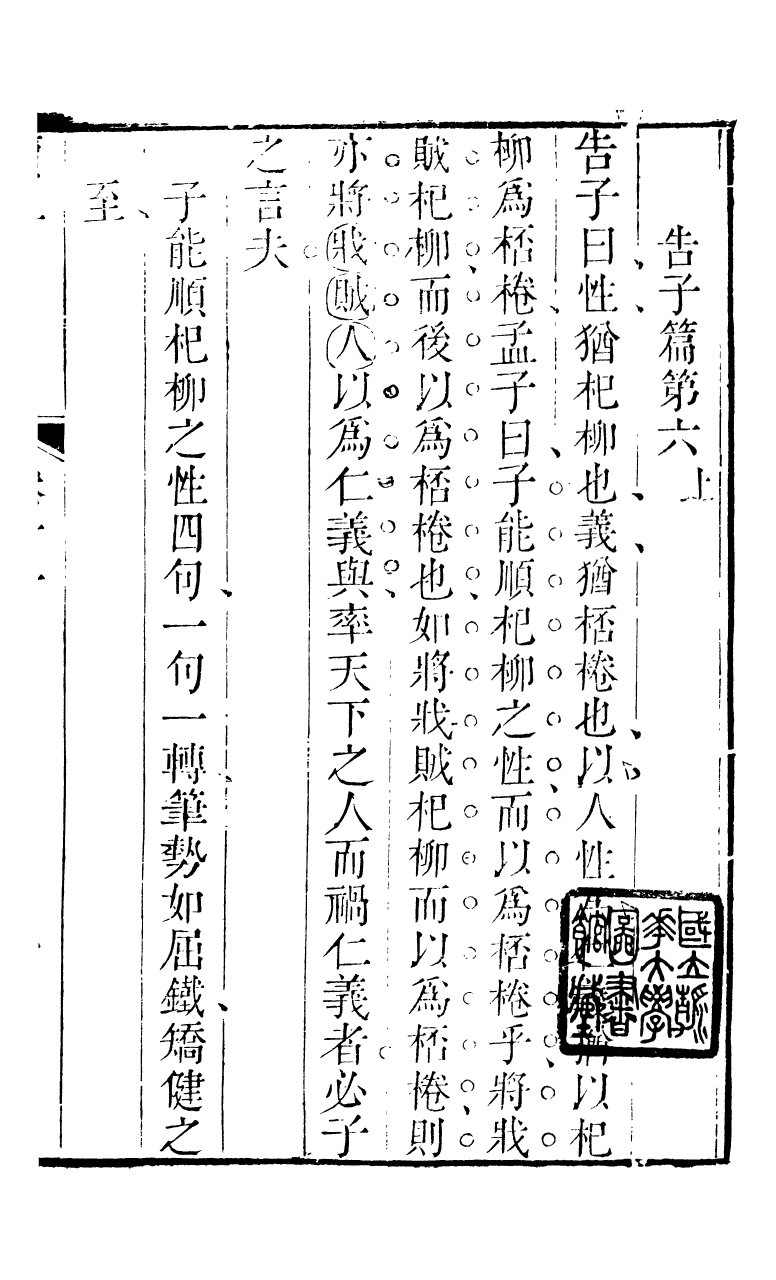 告子篇第六上
告子曰性猶杞柳也義猶桮棬也以人性猶以杞
柳爲桮棬孟子曰子能順杞柳之性而以爲桮棬乎將戕
賊杞柳而後以爲桮棬也如將戕賊杞柳而以爲桮棬則
亦將戕賊人以爲仁義與率天下之人而禍仁義者必子
之言夫
子能順杞柳之性四句一句一轉筆勢如屈鐵矯健之
至
國立清
華大學
圖書
館藏